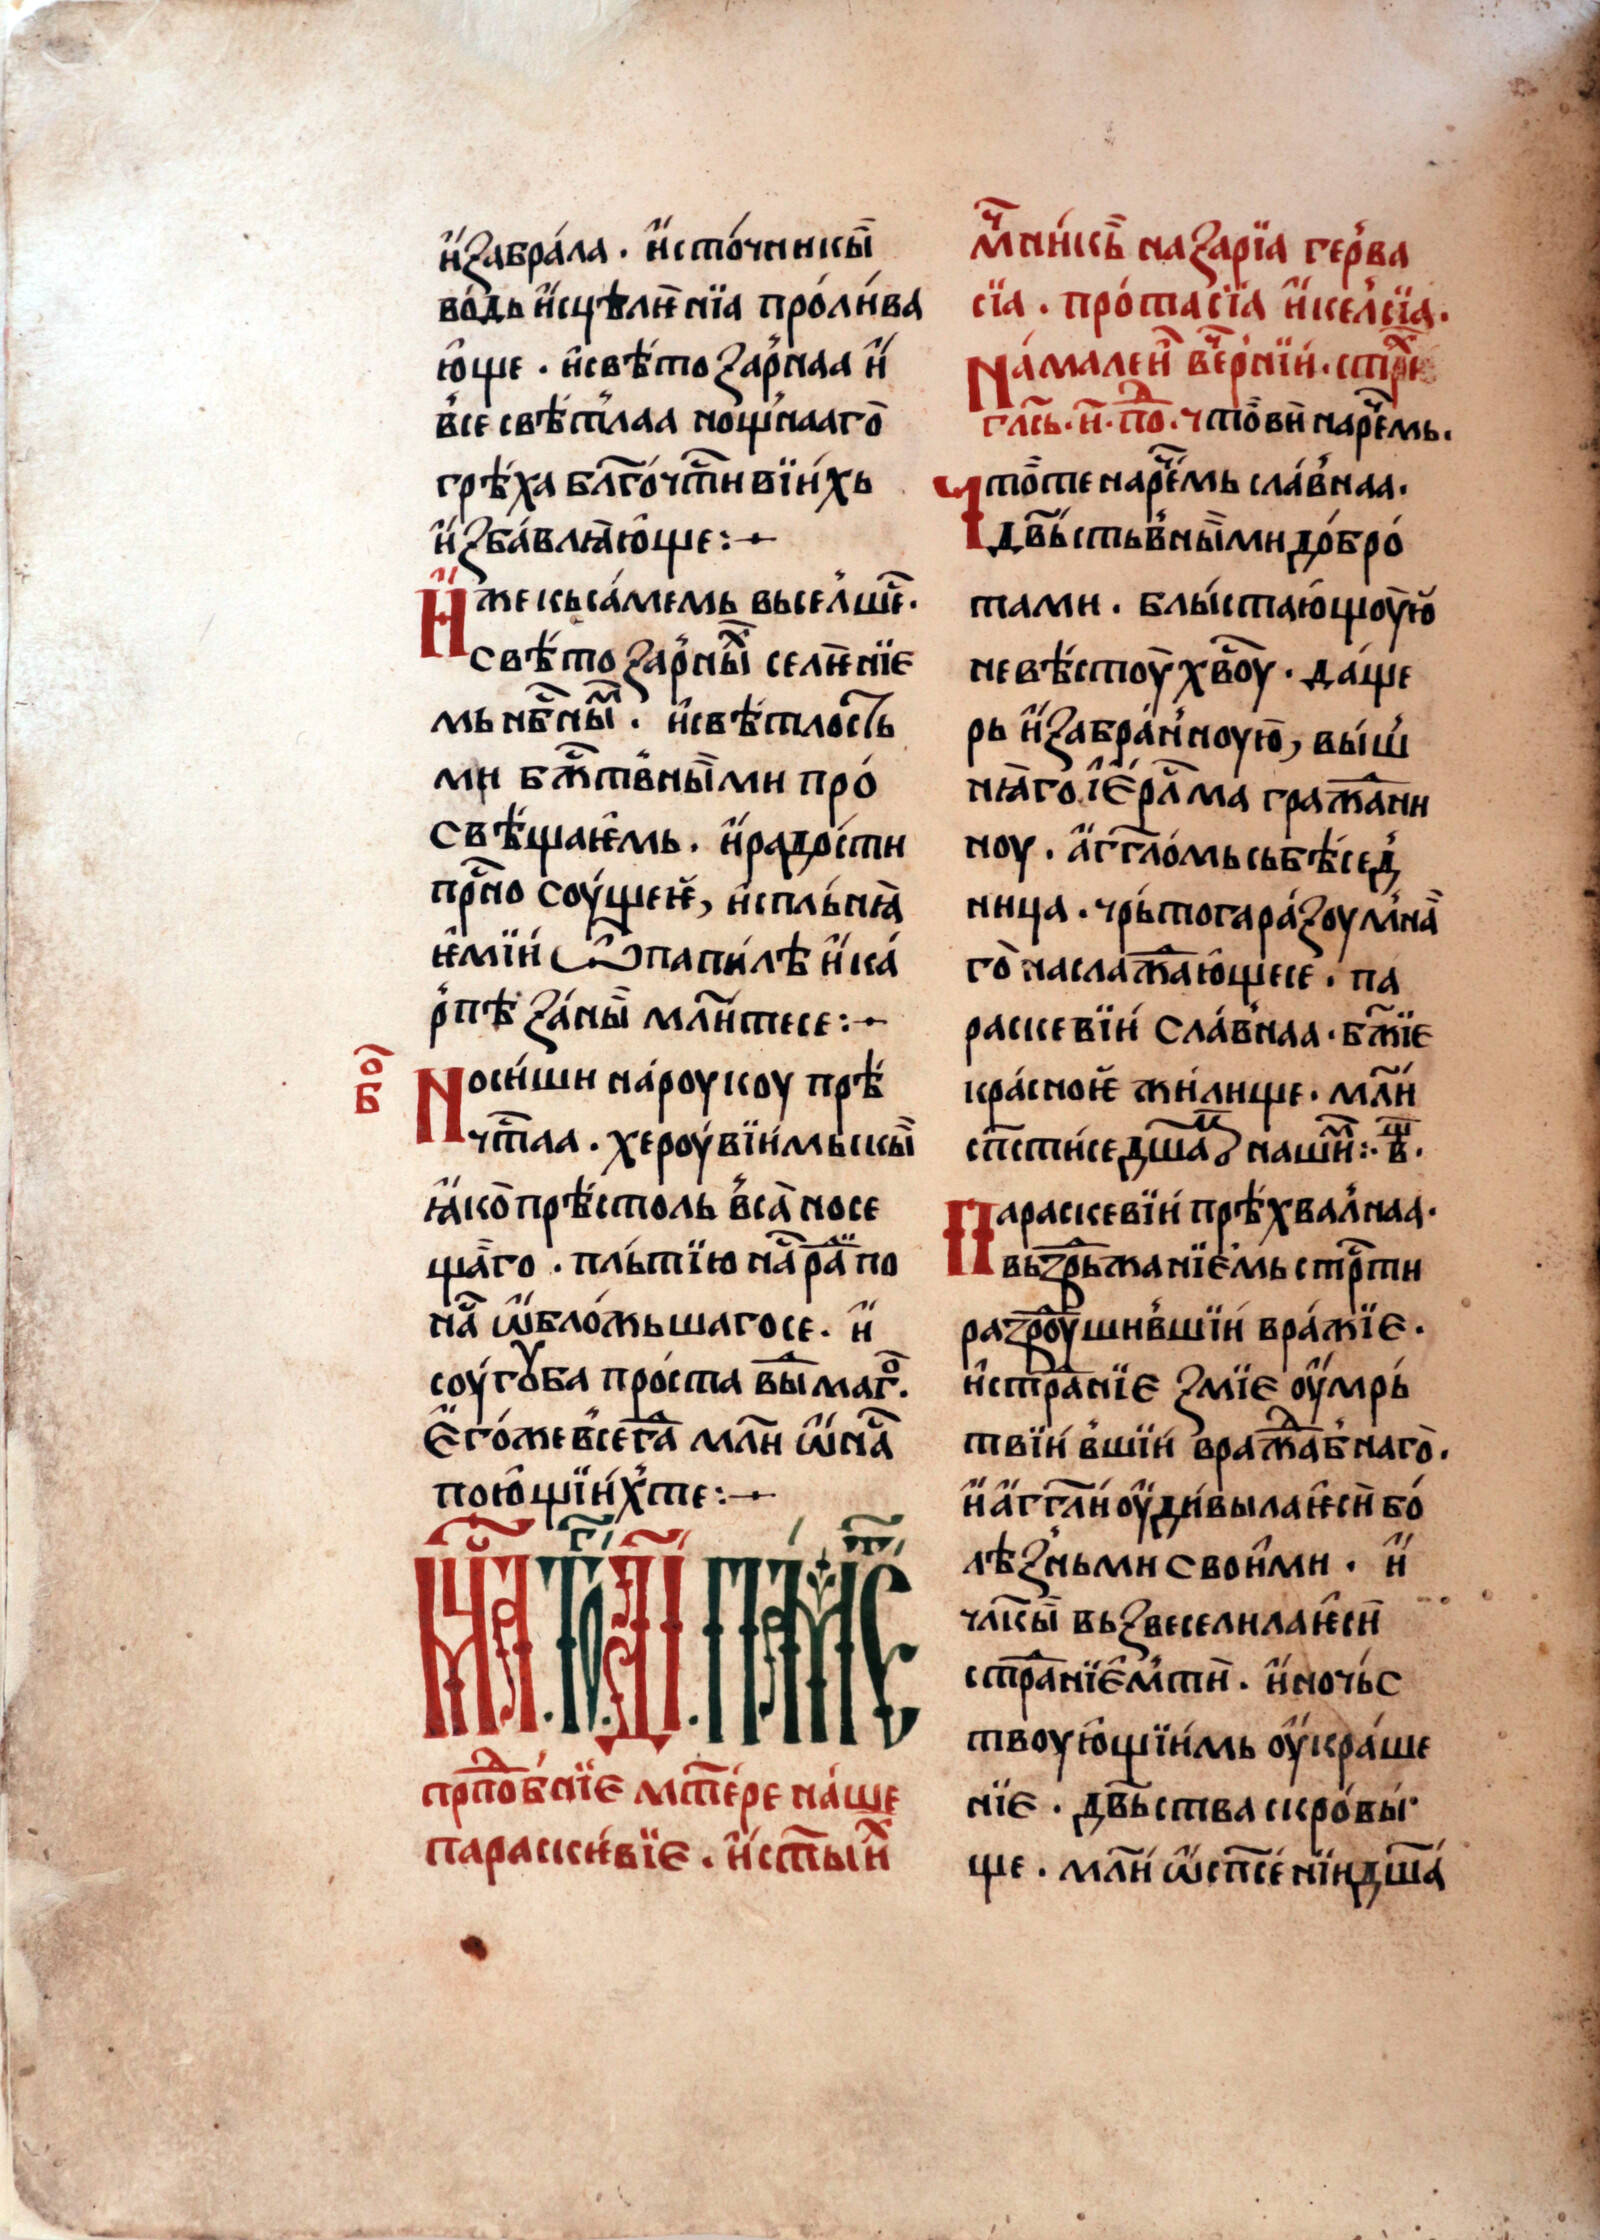 и҆забра́ла · и҆сто́чникы̏
во́дь и҆сцѣлꙗ҆нїа про́ли́ва
ю҆ще · и҆свѣ́тоꙁа́рнаа и҆
в҆сесвѣ́тлаа но́щнааго̀
грѣ́ха бл҃го́чт҃ивїи́хь
и҆ꙁба́влꙗю҆ще :
И҆же кьса́мемь высе́лше҃ ·
свѣ́тоꙁа́рны̏х селе́нїе
мь нб҃ны̏м · и҆свѣ́тлость
ми бж҃тв҆ны́ми про́
свѣ́щаѥмь · и҆ра́до́сти
пр҃но соу́щеѥ, и҆спль́нꙗ
ѥмїи́ ѡ҆папи́лѣ и҆ка́
рпѣ ꙁа́ны̏ мл҃и́тесе :
бо҃
Носи́ши на́роукоу прѣ́
чт҃аа · хероу́вїи́мьскы̏
ꙗ҆ко̀прѣ́столь в҆са̀носе
ща̀го · пль́тїю на҃ра́ди по
на҃ ѡ҆бло́жьшагосе · и҆
соу́гꙋба про́ста бы҃маго ·
Є҆го́жевсега҃ мл҃и ѡ҆на҃
пою҆щїи́х те :
Мц҃а · того · ді · паме҃
прп҃до́бнїе мт҃ере на́ше
параски́вїе · и҆ст҃ы́их
мч҃ни́кь наꙁарїа ге́рва
сїа · про́тасїа и҆ке́лсїа ·
На́малеи҆ ве҃че́рнїи · стр҃их
гла҃сь · и҃ · по҃д · что̀ви наре҃че́мь ·
Что̀те наре҃че́мь сла́внаа ·
дв҃ьства́ны̏ми до́бро́
тами · блы́стаю҆щоую҆
невѣ́стоу хв҃оу · да́ще
рь и҆ꙁабра́нноую, вы́ш
нꙗ҆го і҆Є҆р҃ла́ма граж҃ани
ноу · а҆гг҃ло́мь сьбѣ́сед
ница · чрь́тогара́ꙁоу́мна̀
го̀ наслаж҃аю҆щесе · па
раскевїи́ сла́внаа · бж҃їе
кра́сноѥ жи́лище · мл҃и́
сп҃сти́се дш҃амь нашим҃ : в҃ ·
Параскевїи́ прѣ́хвалнаа ·
вьꙁдрьжанїе́мь стр҃ти
раꙁдроушившїи́ вра́жїе ·
и҆стра́нїе ꙁмїе оу҆мрь́
твїи́вшїи́ враж҃авнаго̀ ·
и҆ а҆гг҃ли́ оу҆ди́выла ѥси̏ бо́
лѣꙁньми свои҆ми · и҆
чл҃кы̏ вьꙁвеселила ѥси̏
стра́нїе҆мти · и҆ночьс
твоую҆щїи́мь оу҆кра́ше
нїе · дв҃ьства скро́вы́
ще · мл҃и́ ѡ҆сп҃се́нїи дш҃а́